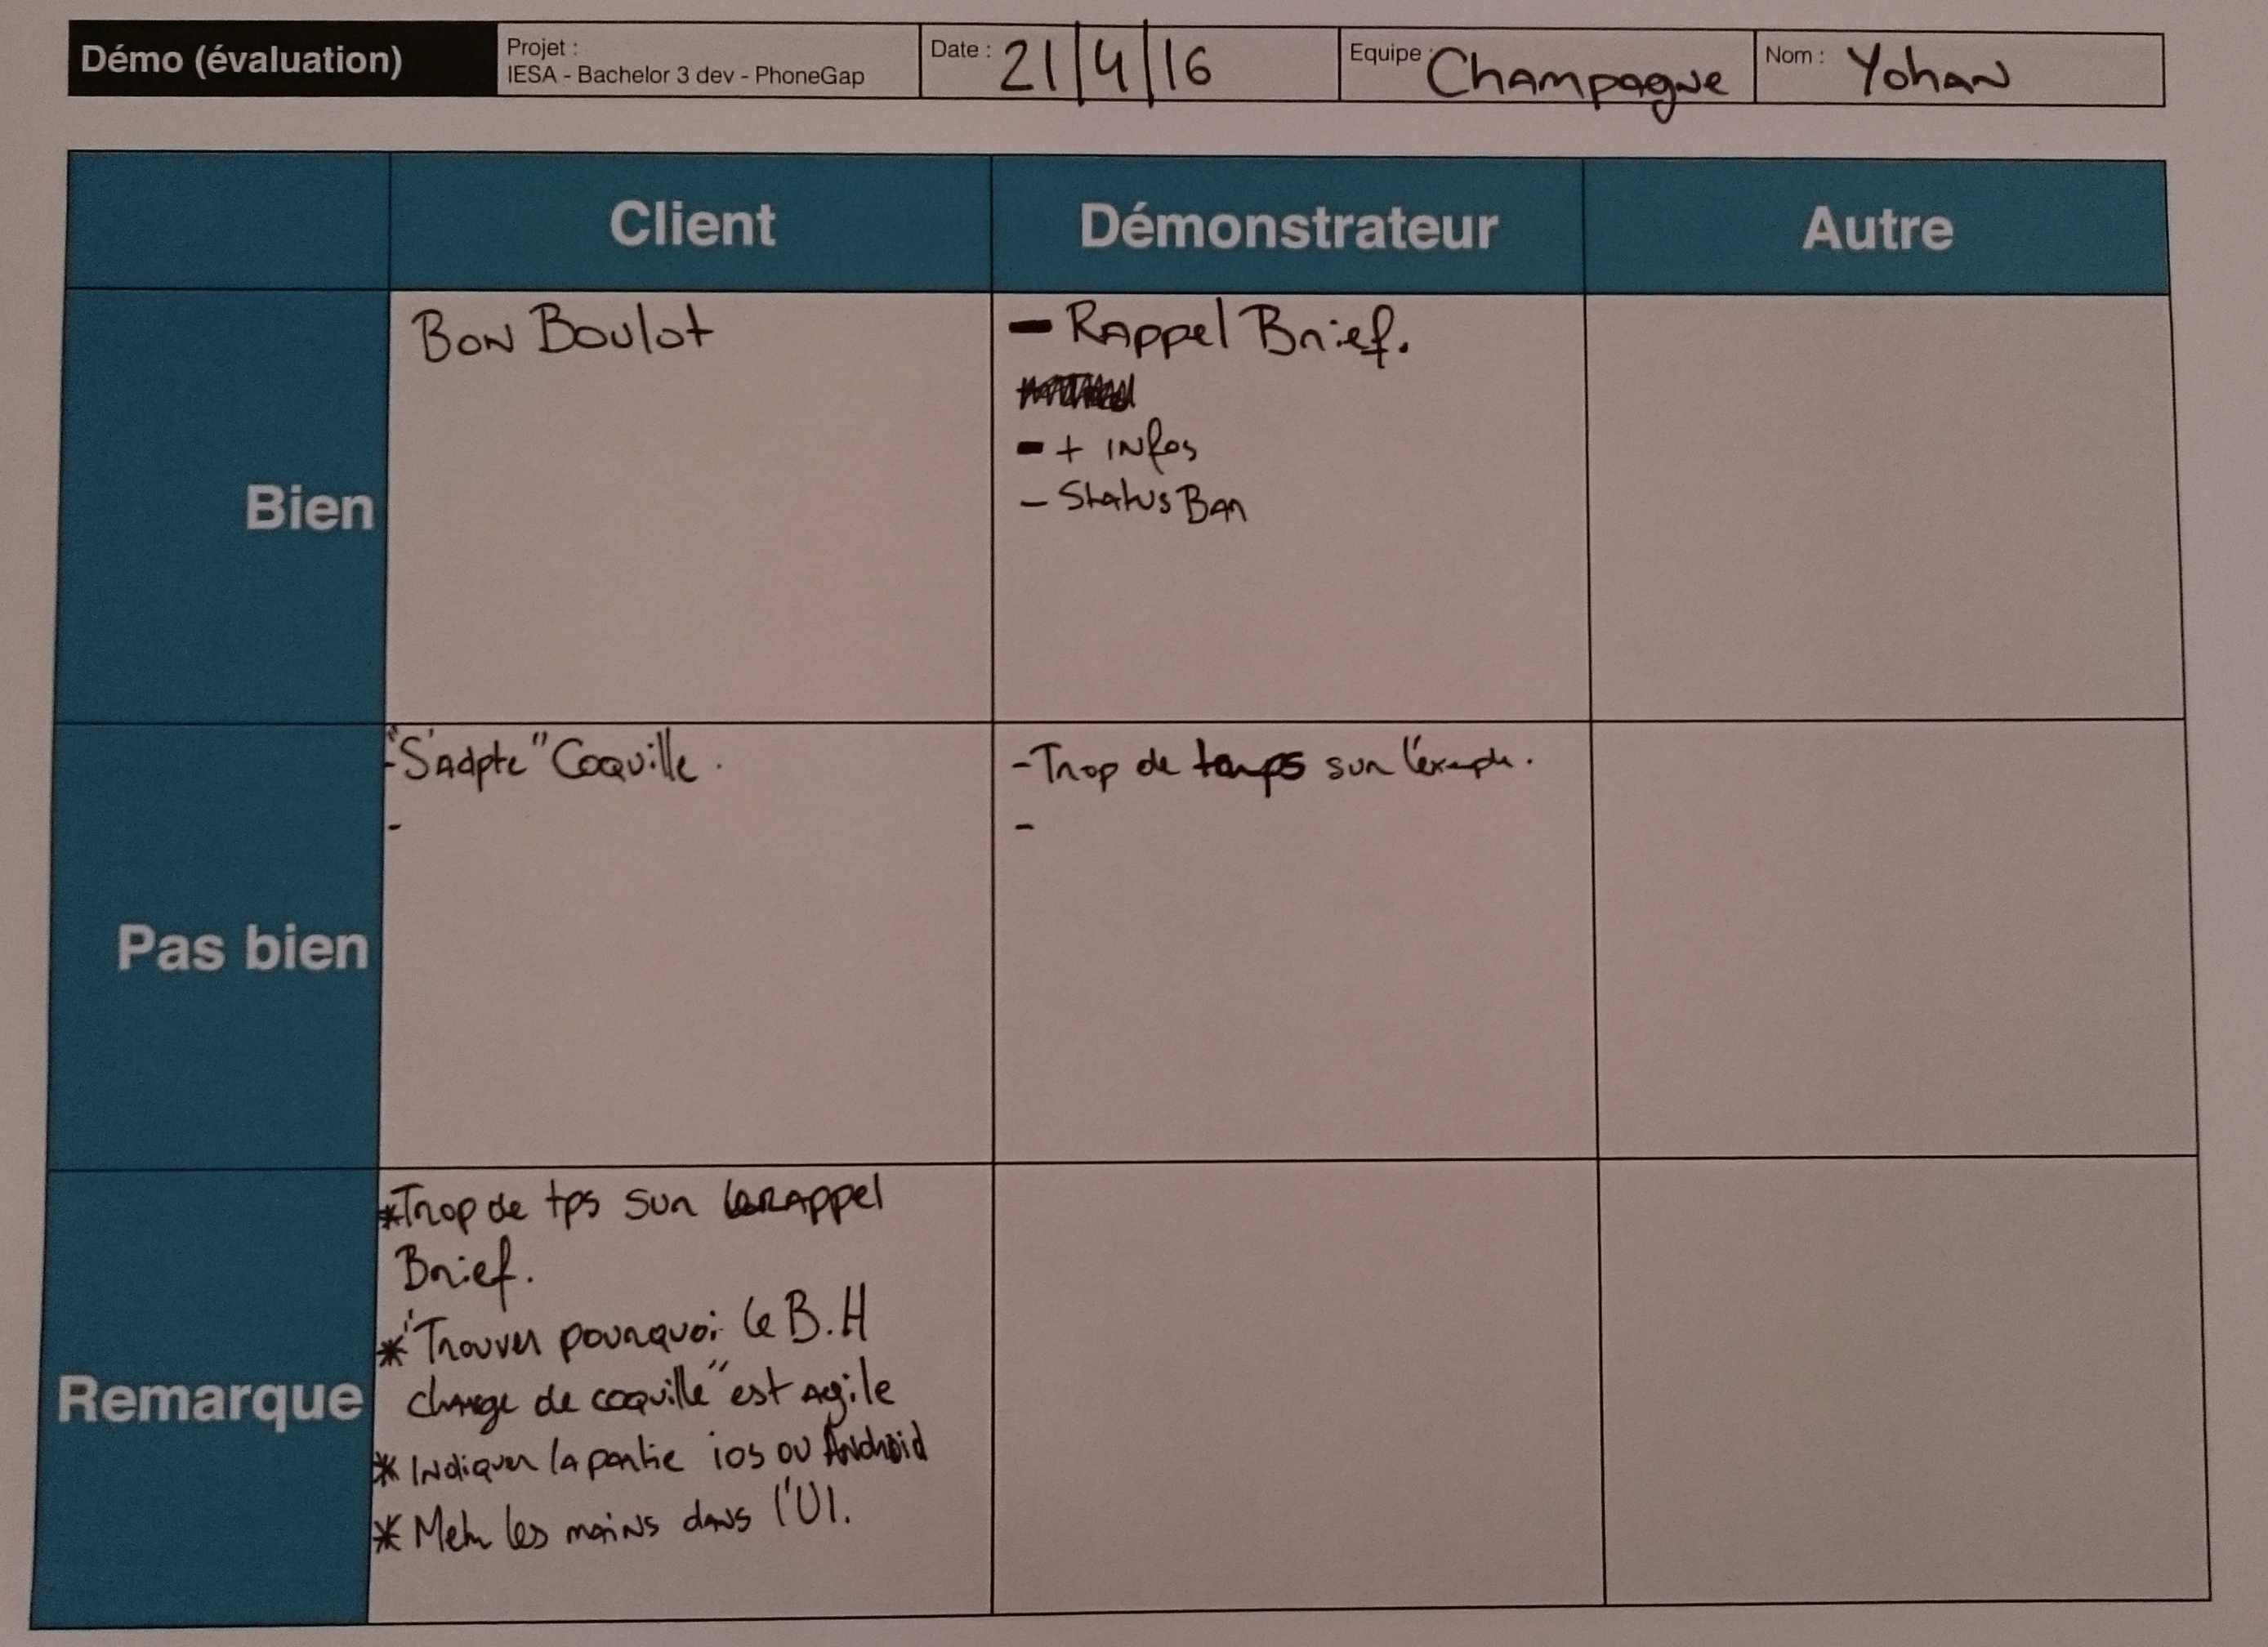 Démo (évaluation)
Projet :
IESA - Bachelor 3 dev - PhoneGap
Date : 21/4/16
Equipe : Champagne
Nom : Yohan
Client
Démonstrateur
Autre
Bien
Bon Boulot
- Rappel Brief.
- + infos
- Status Bar
Pas bien
- "S'adpte" Coquille.
-
- Trop de temps sur l'exemple.
-
Remarque
* Trop de tps sur le Rappel
Brief.
* "Trouver pourquoi le B.H
change de coquille" est agile
* Indiquer la partie ios ou Android
* Mettre les mains dans l'UI.